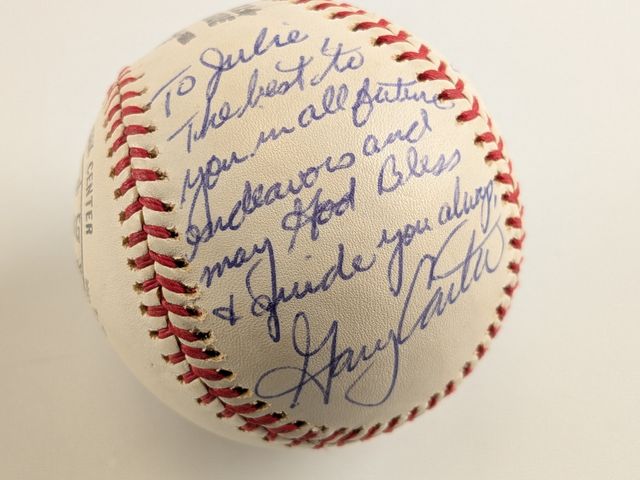 To Julie
The best to
you in all future
endeavors and
may God Bless
& Guide you always,
Gary Carter
CENTER